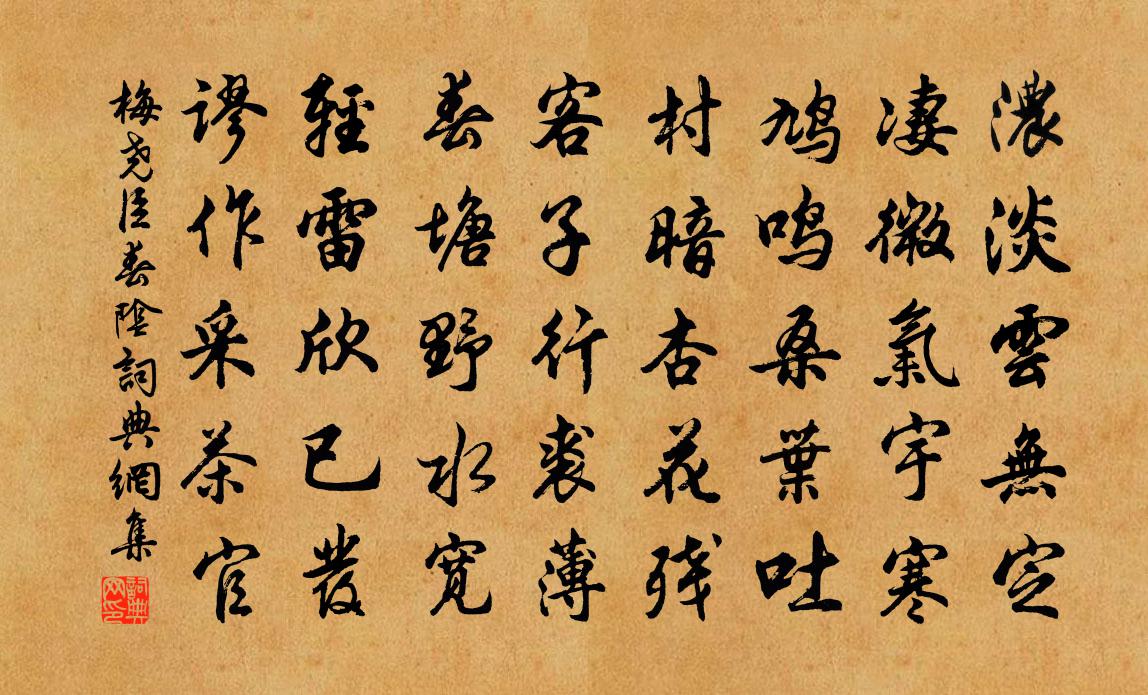 濃淡雲無定
凄微氣宇寒
鸠鸣桑葉吐
村暗杏花残
客子行裘薄
春塘野水寬
輕雷欣已發
謬作采茶官
梅尧臣春陰詞典網集
詞典网印